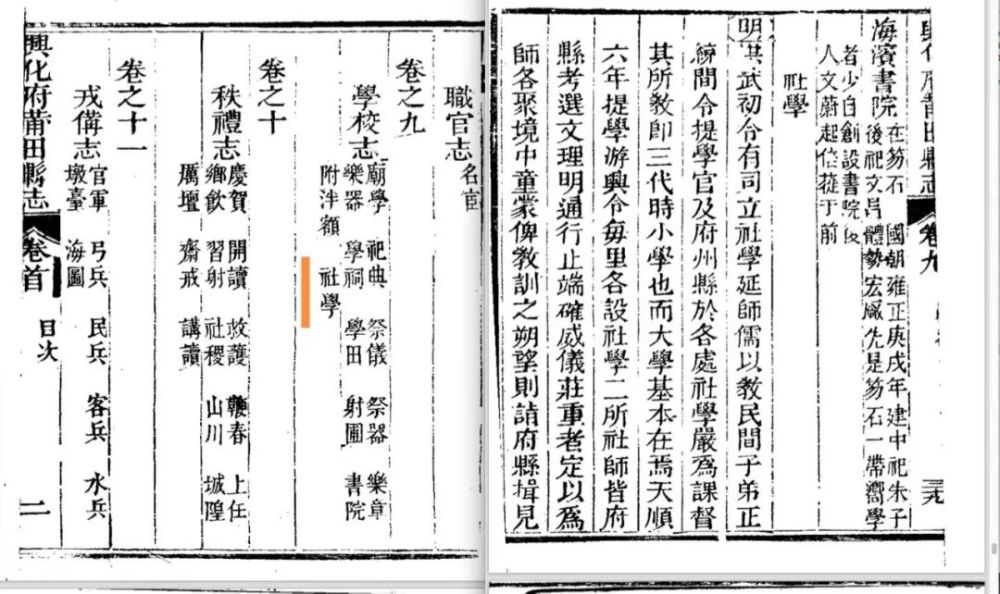 職官志 名宦
卷之九
學校志 廟學 祀典 祭儀 祭器 樂章
樂器 學祠 學田 射圃 書院
附泮額 社學
卷之十
秩禮志 慶賀 開讀 救護 鞭春 上任
鄉飲 習射 社稷 山川 城隍
厲壇 齋戒 講讀
卷之十一
戎備志 官軍 弓兵 民兵 客兵 水兵
墩臺 海圖
興化府莆田縣志 卷首 目次 二
興化府莆田縣志 卷九 三九
海濱書院 在笏石 國朝雍正庚戌年建中祀朱子
後祀文昌體勢宏厰先是笏石一帶嚮學
者少自創設書院後
人文蔚起倍蓰于前
社學
明洪武初令有司立社學延師儒以教民間子弟正
統間令提學官及府州縣於各處社學嚴爲課督
其所教即三代時小學也而大學基本在焉天順
六年提學游興令每里各設社學二所社師皆府
縣考選文理明通行止端確威儀莊重者定以爲
師各聚境中童蒙俾教訓之朔望則詣府縣揖見